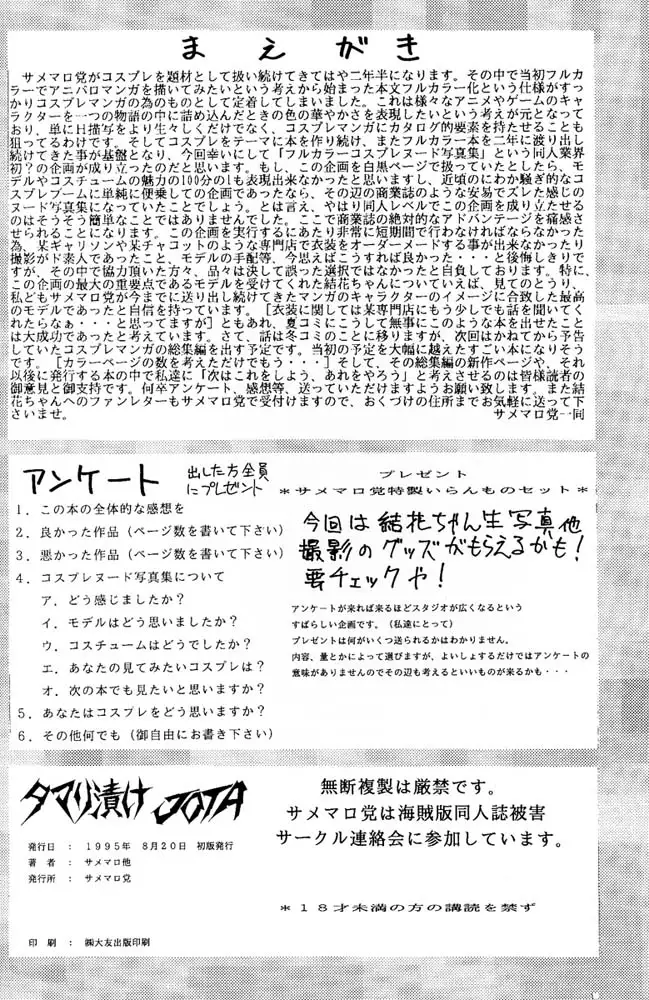 まえがき
サメマロ党がコスプレを題材として扱い続けてきてはや二年半になります。その中で当初フルカ
ラーでアニパロマンガを描いてみたいという考えから始まった本文フルカラー化という仕様がすっ
かりコスプレマンガの為のものとして定着してしまいました。これは様々なアニメやゲームのキャ
ラクターを一つの物語の中に詰め込んだときの色の華やかさを表現したいという考えが元となって
おり、単にH描写をより生々しくだけでなく、コスプレマンガにカタログ的要素を持たせることも
狙ってるわけです。そしてコスプレをテーマに本を作り続け、またフルカラー本を二年に渡り出し
続けてきた事が基盤となり、今回幸いにして「フルカラーコスプレヌード写真集」という同人業界
初？の企画が成り立ったのだと思います。もし、この企画を白黒ページで扱っていたとしたら、モ
デルやコスチュームの魅力の100分の1も表現出来なかったと思いますし、近頃のにわか騒ぎ的なコ
スプレブームに単純に便乗しての企画であったなら、その辺の商業誌のような安易でズレた感じの
ヌード写真集になっていたことでしょう。とは言え、やはり同人レベルでこの企画を成り立たせる
のはそうそう簡単なことではありませんでした。ここで商業誌の絶対的なアドバンテージを痛感さ
せられることになります。この企画を実行するにあたり非常に短期間で行わなければならなかった
為、某ギャリソンや某チャコットのような専門店で衣装をオーダーメードする事が出来なかったり
撮影がド素人であったこと、モデルの手配等、今思えばこうすれば良かった・・・と後悔しきりで
すが、その中で協力頂いた方々、品々は決して誤った選択ではなかったと自負しております。特に、
この企画の最大の重要点であるモデルを受けてくれた結花ちゃんについていえば、見てのとうり、
私どもサメマロ党が今までに送り出し続けてきたマンガのキャラクターのイメージに合致した最高
のモデルであったと自信を持っています。［衣装に関しては某専門店にもう少しでも話を聞いてく
れたらなぁ・・・と思ってますが］ともあれ、夏コミにこうして無事にこのような本を出せたこと
は大成功であったと考えています。さて、話は冬コミのことに移りますが、次回はかねてから予告
していたコスプレマンガの総集編を出す予定です。当初の予定を大幅に越えたすごい本になりそう
です。［カラーページの数を考えただけでもう・・・］そして、その総集編の新作ページや、それ
以後に発行する本の中で私達に「次はこれをしよう、あれをやろう」と考えさせるのは皆様読者の
御意見と御支持です。何卒アンケート、感想等、送っていただけますようお願い致します。また結
花ちゃんへのファンレターもサメマロ党で受付けますので、おくづけの住所までお気軽に送って下
さいませ。
サメマロ党一同
アンケート
出した方全員
にプレゼント
1．この本の全体的な感想を
2．良かった作品（ページ数を書いて下さい）
3．悪かった作品（ページ数を書いて下さい）
4．コスプレヌード写真集について
ア．どう感じましたか？
イ．モデルはどう思いましたか？
ウ．コスチュームはどうでしたか？
エ．あなたの見てみたいコスプレは？
オ．次の本でも見たいと思いますか？
5．あなたはコスプレをどう思いますか？
6．その他何でも（御自由にお書き下さい）
プレゼント
＊サメマロ党特製いらんものセット＊
今回は結花ちゃん生写真他
撮影のグッズがもらえるかも！
要チェックや！
アンケートが来れば来るほどスタジオが広くなるという
すばらしい企画です。（私達にとって）
プレゼントは何がいくつ送られるかはわかりません。
内容、量とかによって選びますが、よいしょするだけではアンケートの
意味がありませんのでその辺も考えるといいものが来るかも・・・
タマリ漬け JOTA
発行日 ： 1995年 8月20日 初版発行
著者 ： サメマロ他
発行所 ： サメマロ党
印刷 ： ㈱大友出版印刷
無断複製は厳禁です。
サメマロ党は海賊版同人誌被害
サークル連絡会に参加しています。
＊18才未満の方の講読を禁ず